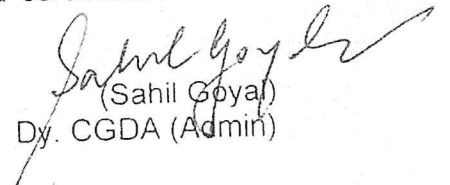 Sahil Goyal
(Sahil Goyal)
Dy. CGDA (Admin)